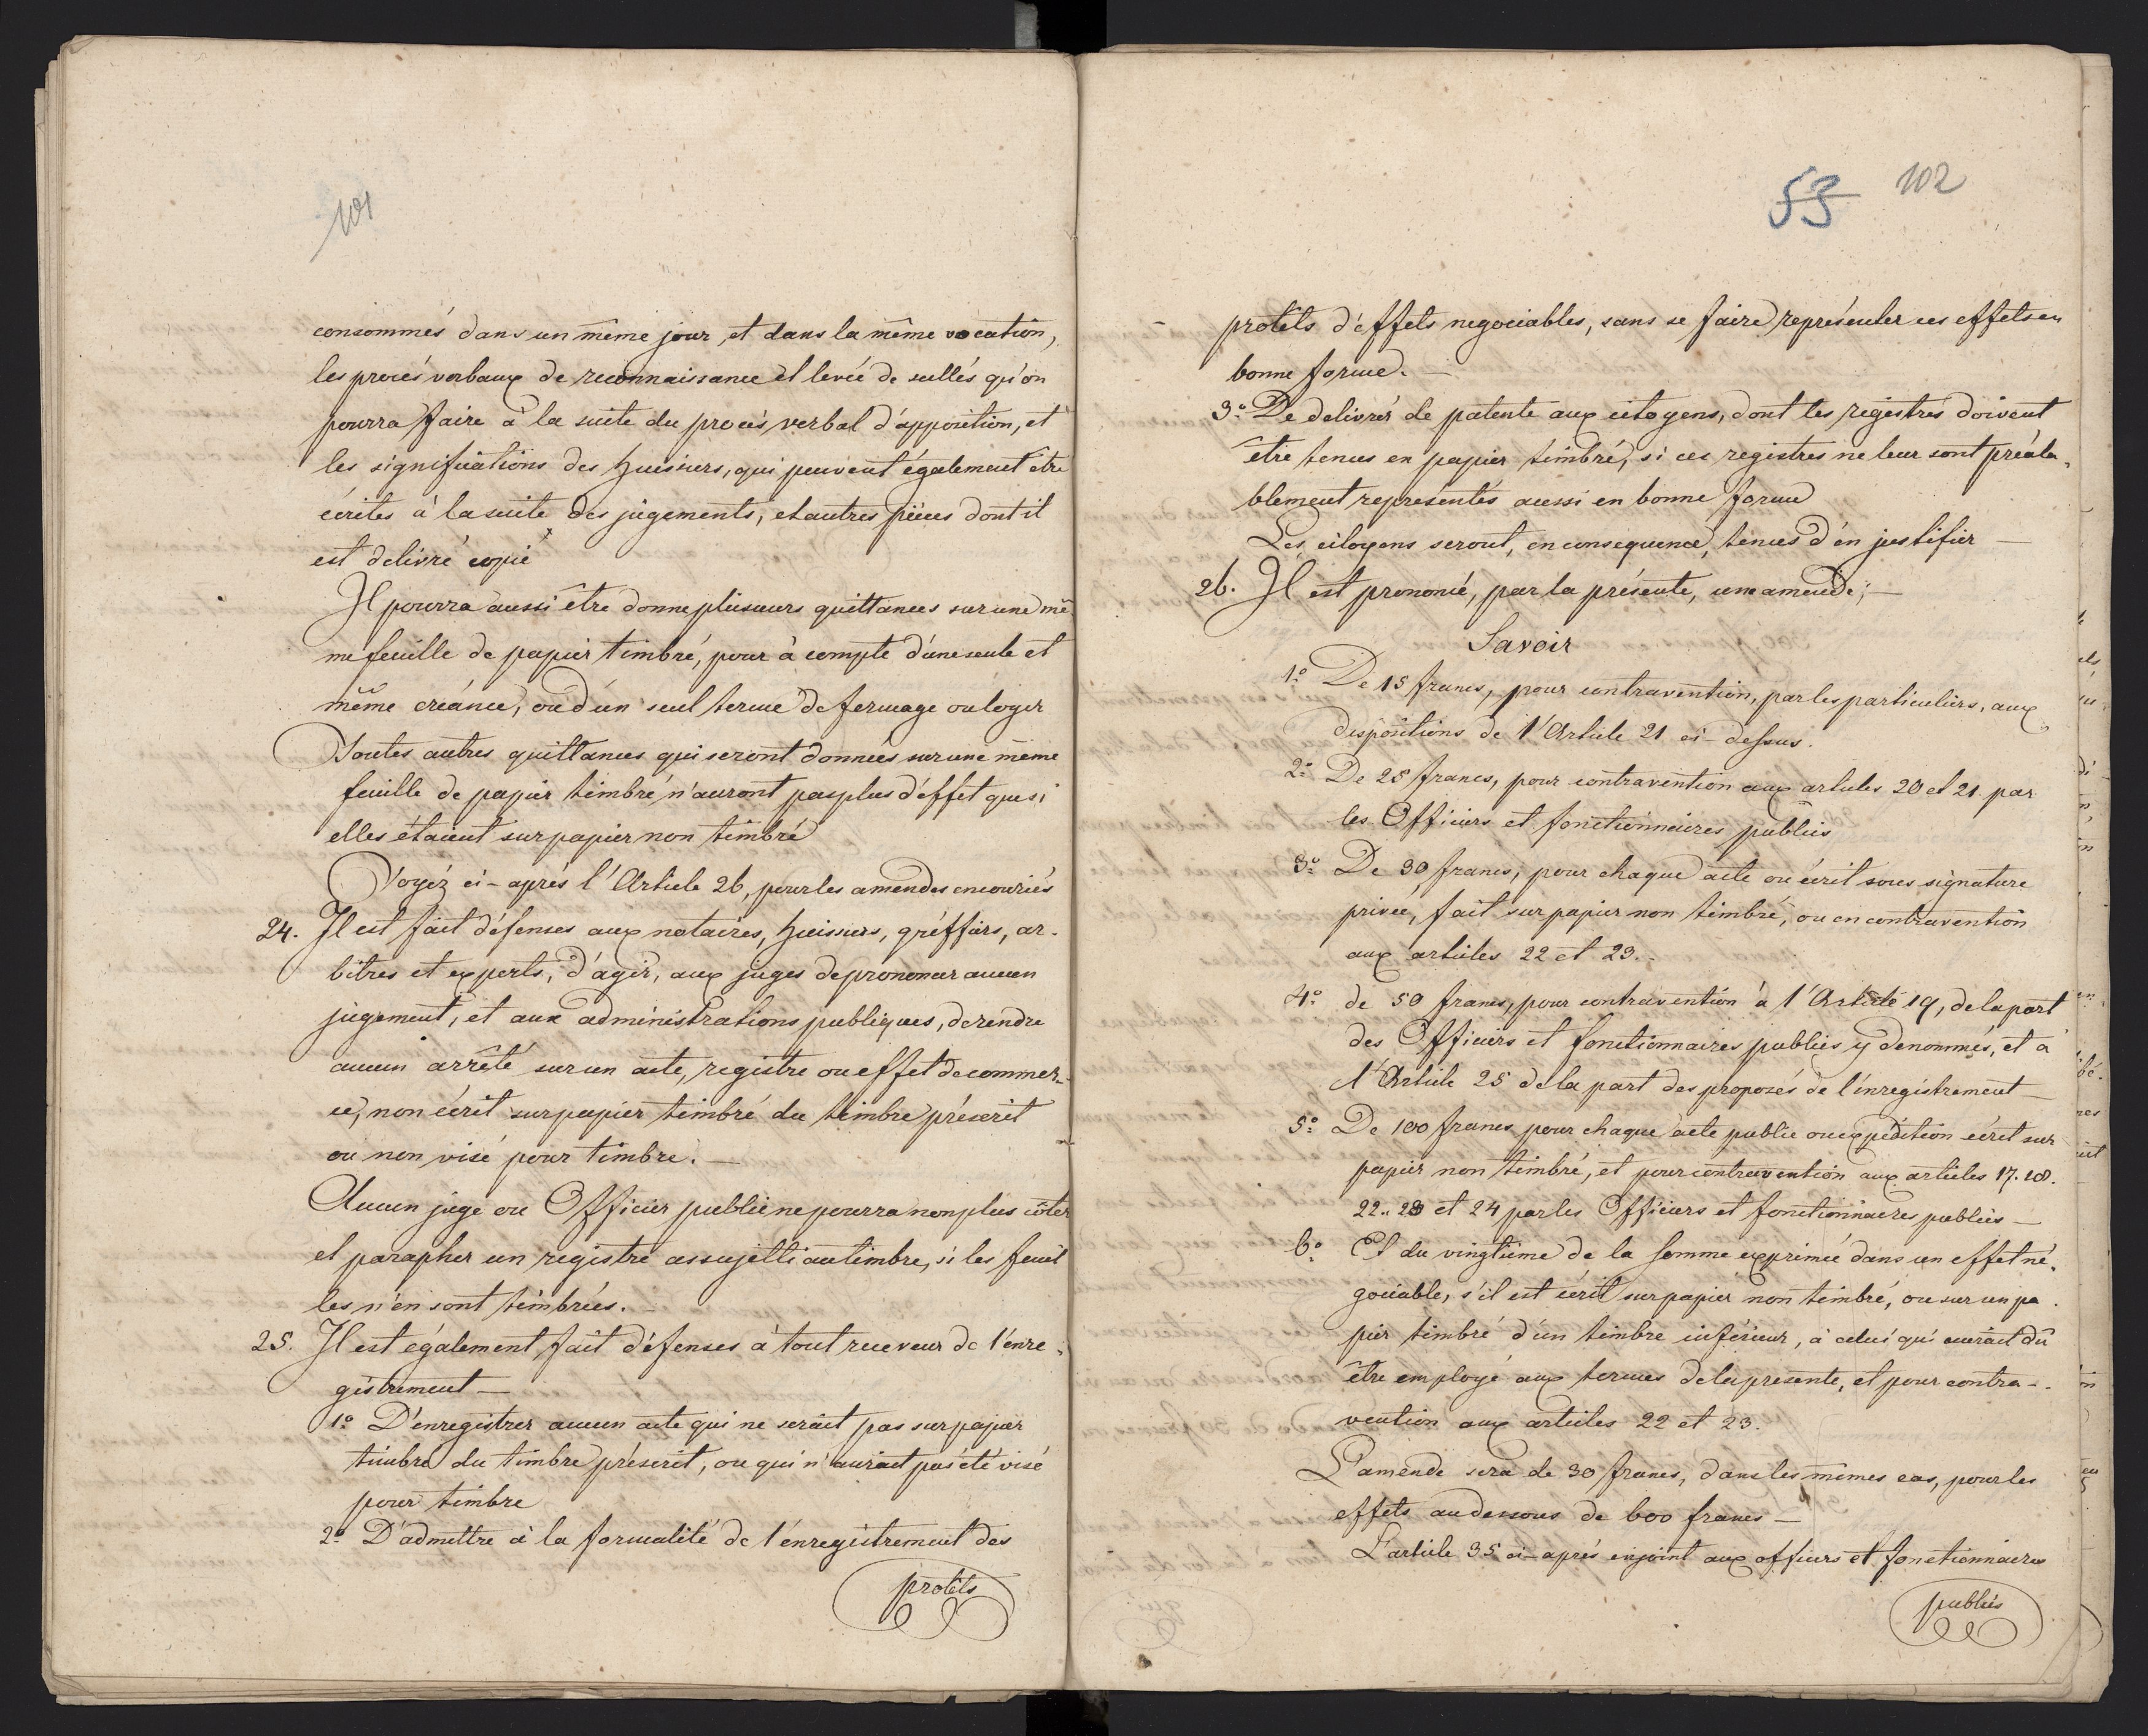 101
consommés dans un même jour, et dans la même vocation,
les procés verbaux de reconnaissance et levée de scellés qu'on
pourra faire à la suite du procès verbal d'apposition, et
les significations des huissiers, qui peuvent également être
écrites à la suite des jugements, et autres pièces dont il
est delivré copie
Il pourra aussi être donne plusieurs quittances sur une mê
me feuille de papier timbré, pour à compte d'une seule et
même créance, ou d'un seul terme de fermage ou loyer
Toutes autres quittances qui seront données sur une même
feuille de papier timbré n'auront pas plus d'éffet que si
elles étaient sur papier non timbré
Voyéz ci-aprés l'Article 26, pour les amendes encouriés
24. Il est fait défenses aux notaires, huissiers, gréffiérs, ar-
bitres et experts, d'agir, aux juges de prononcer aucun
jugement, et aux administrations publiques, de rendre
aucun arrêté sur un acte, registre ou effet de commer-
ce, non écrit sur papier timbré du timbre préscrit
ou non visé pour timbre. —
Aucun juge ou Officier public ne pourra non plus côter
et parapher un registre assujetti au timbre, si les feuil
les n'en sont timbrées. —
25. Il est également fait défenses à tout receveur de l'enre-
gistrement —
1º D'enregistrer aucun acte qui ne serait pas sur papier
timbré du timbre préscrit, ou qui n'aurait pas été visé
pour timbre
2º D'admettre à la formalité de l'énregistrement des
protêts
53 102
protêts d'éffets negociables, sans se faire représenter ces effets en
bonne forme. —
3º De delivrér de patente aux citoyens, dont les régistres doivent
être tenus en papier timbré, si ces registres ne leur sont préala-
blement representés aussi en bonne forme
Les citoyens seront, en consequence, tenus d'en justifier —
26. Il est prononcé, par la présente, une amende; —
Savoir
1º De 15 francs, pour contravention, par les particuliers, aux
dispositions de l'Article 21 ci-dessus.
2º De 25 francs, pour contravention aux articles 20 et 21. par
les Officiers et fonctionnaires publics
3º De 30 francs, pour chaque acte ou écrit sous signature
privée, fait sur papier non timbré, ou en contravention
aux articles 22 et 23. -
4º de 50 francs, pour contravention à l'Article 19, de la part
des Officiers et fonctionnaires publics y denommés, et à
l'Article 25 de la part des proposés de l'énregistrement —
5º De 100 francs pour chaque acte public ou expédition écrit sur
papier non timbré, et pour contravention aux articles 17. 18.
22.. 23 et 24 par les Officiers et fonctionnaires publics —
6º Et du vingtième de la somme exprimée dans un effet né-
gociable, s'il est écrit sur papier non timbré, ou sur un pa-
pier timbré d'un timbre inférieur, à celui qui aurait dû
être employé aux termes de la présente, et pour contra-
vention aux articles 22 et 23.
L'amende sera de 30 francs, dans les mêmes cas, pour les
effets audessous de 600 francs —
L'article 35 ci-aprés enjoint aux officiers et fonctionnaires
publics